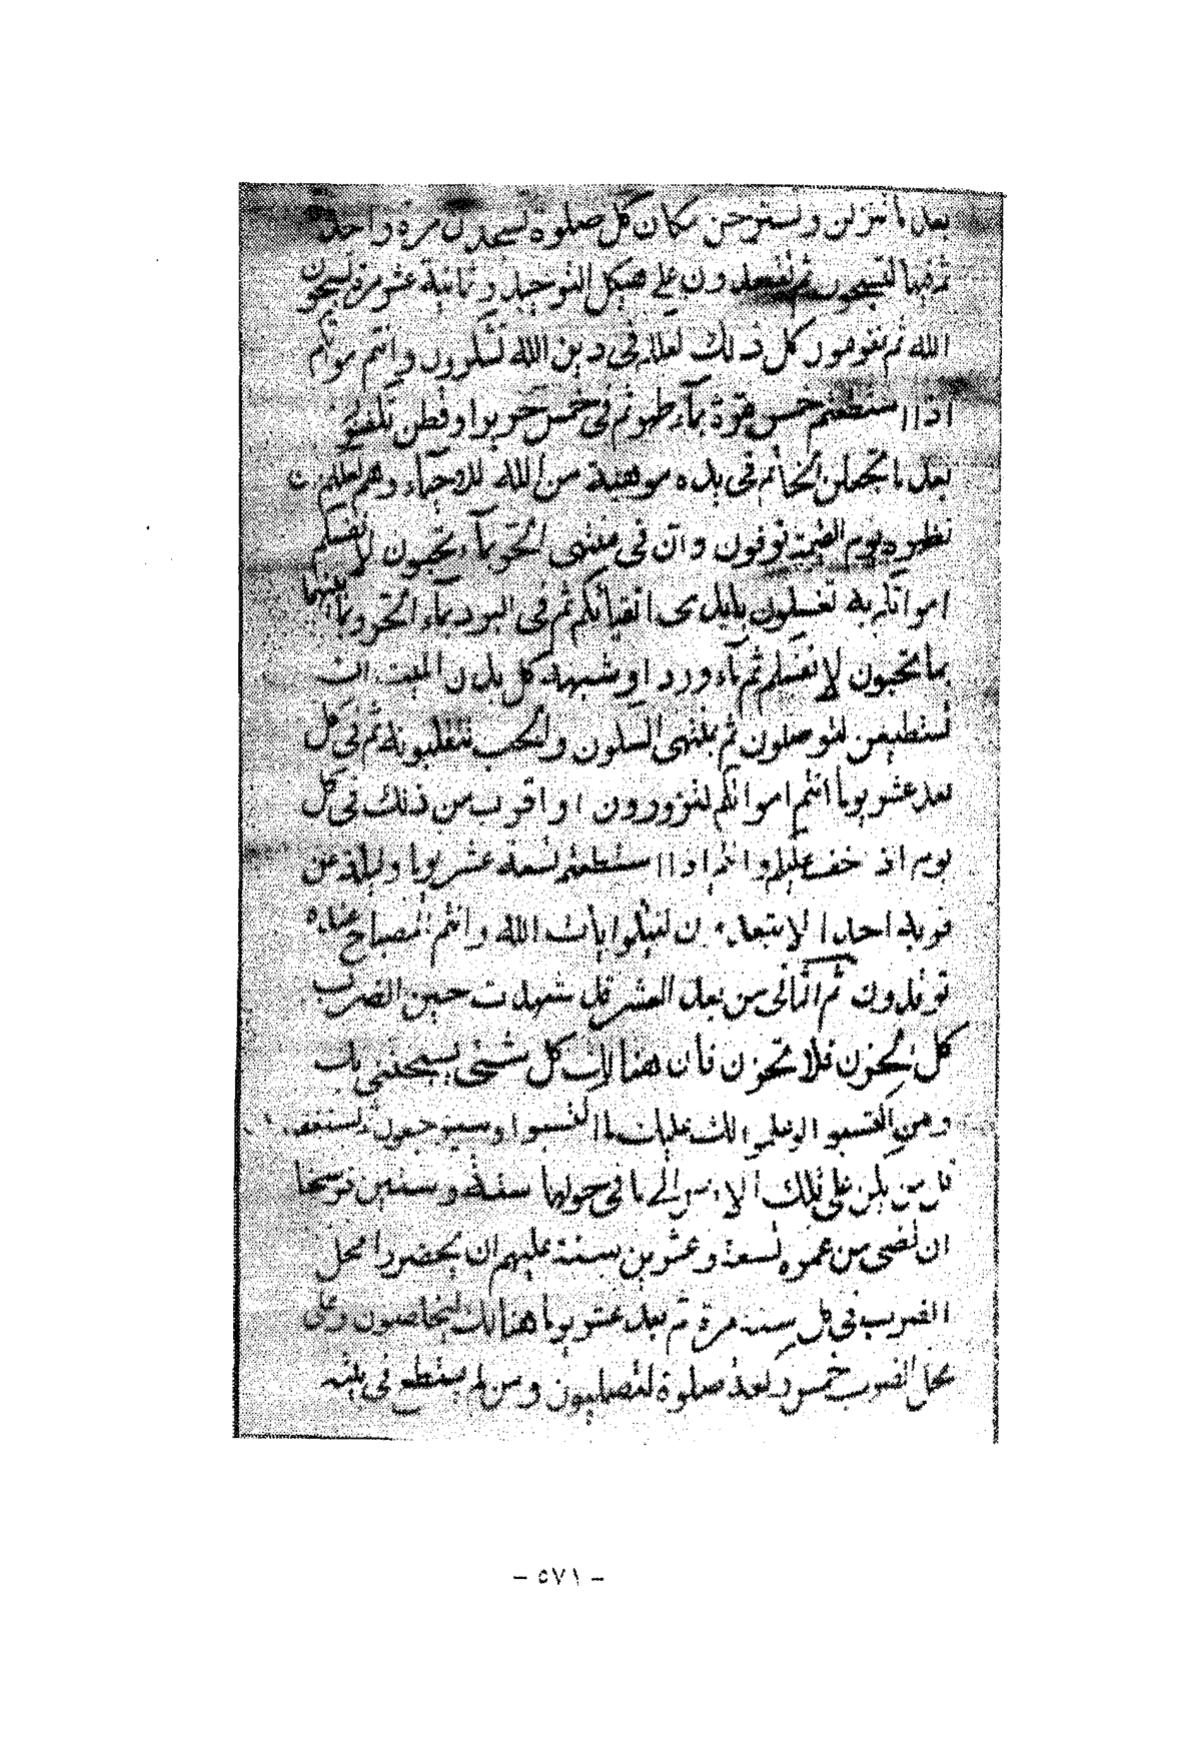 بعد ما تنزلن وتسترحن مكان كل صلوة تسجدن مرة واحدة
ثم فيها لتسبحون ثم تقعدون على هيكل التوحيد وثمانية عشر مرة تسبحون
الله ثم تقومون كل ذلك لعلكم في دين الله تشكرون وانتم موتاكم
اذا استطعتم خمس مرة بماء طهر ثم في خمس حريرا وقطن تكفنون
بعد ما تجعلن الخاتم في يده موهبة من الله للاحياء وهم لعلهم ب
يظهره يوم القيمة توقنون وان في منتهى الحر بماء تحبون لانفسكم
امواتكم به تغسلون بايدى اتقيائكم ثم في البرد بماء الحر وما بينهما
بما تحبون لانفسكم ثم ماء ورد او شبهه كل بدن الميت ان
تستطيعن لتوصلون ثم بمنتهى السكون والحب تنقلبونه ثم في كل
بعد عشر يوما انتم امواتكم لتزورون او اقرب من ذلك في كل
يوم اذ خف عليكم وانتم اذا استطعتم تسعة عشر يوما وليلة عن
قربه احدا لا تبعدون ليتلوا ايات الله وانتم المصباح عنده
توقدون ثم الثاني من بعد العشر قل شهدت حين الضرب
كل الحزن فلا تحزن فان هنالك كل شئ يسبحنني بك
وهن اكتسبوا الوعلموا انك عليك ما اكتسبوا وسيرجعون
قل من يكن على تلك الارض الى ما في حولها ستة وستين فرسخا
ان تقضى من عمره تسعة وعشرين سنة عليهم ان يحضروا محل
الضرب في كل سنة مرة ثم بعد عشر يوما هنالك ليخلصون وعلى
محل الضرب خمس ركعة صلوة لتصليون ومن لم يستطع في بيته
- ٥٧١ -